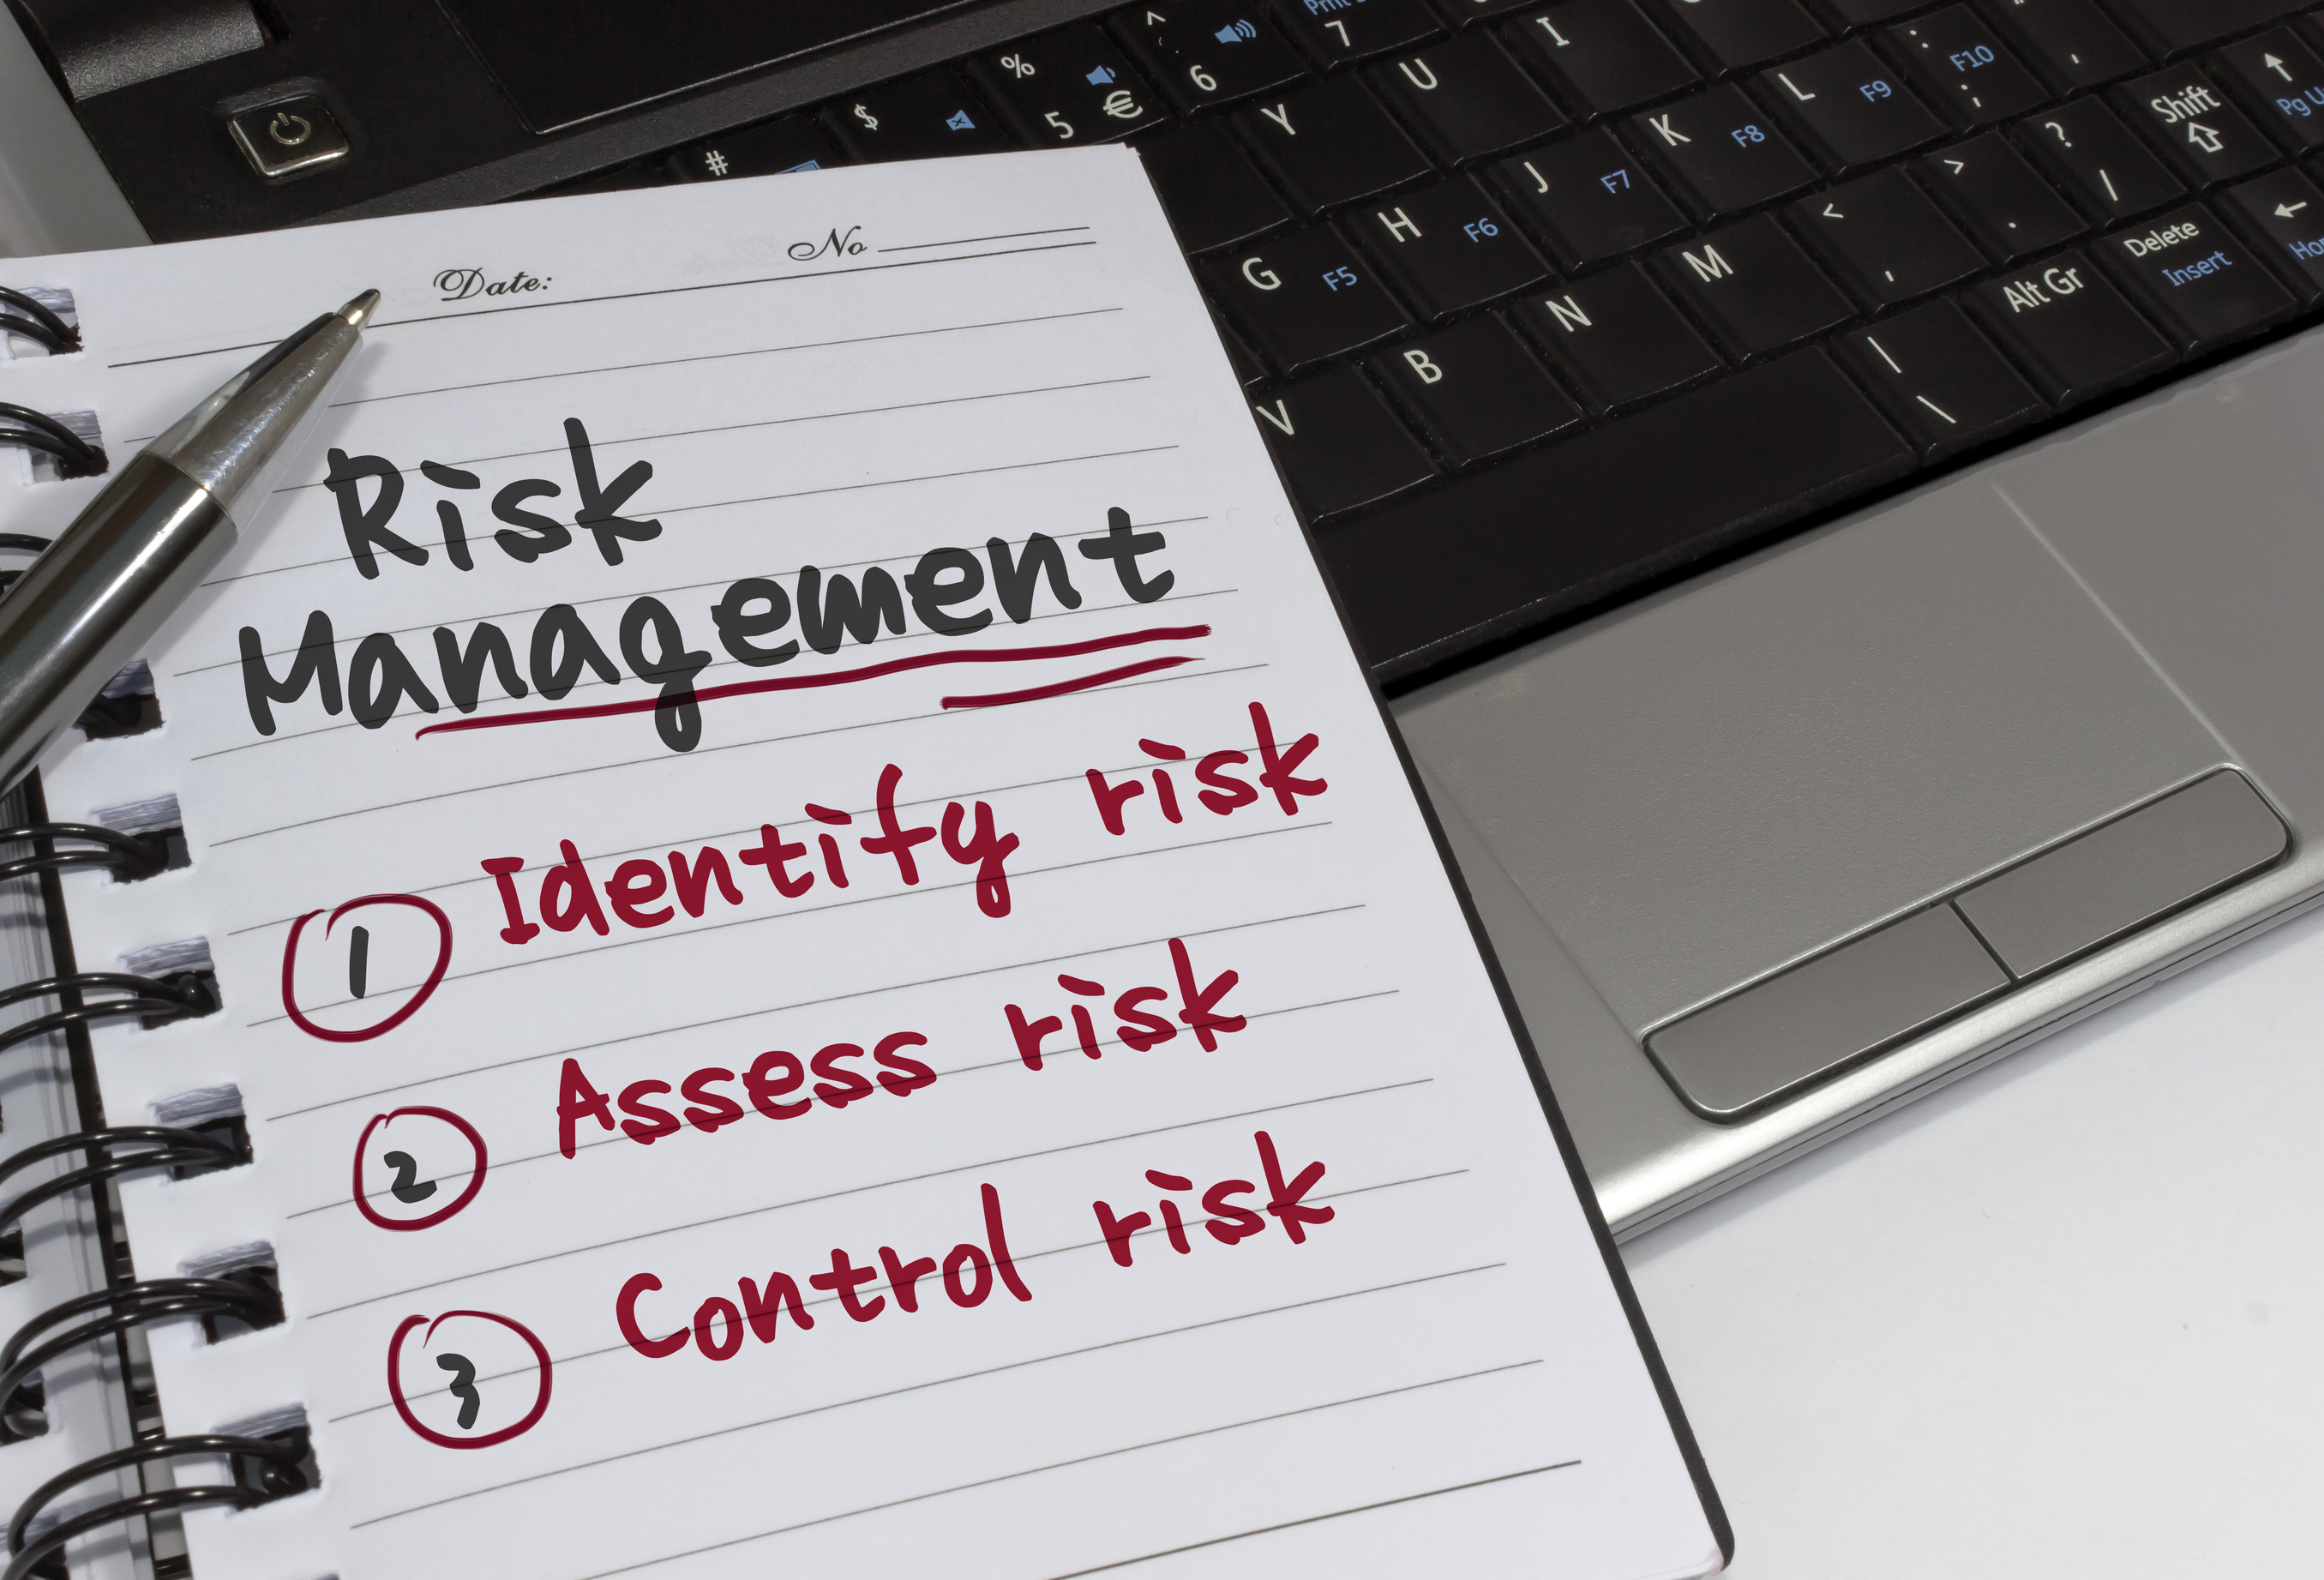 Date:
No
Risk
Management
1 Identify risk
2 Assess risk
3 Control risk
# $ % 5 € ^ 6 7
Y U I
G F5 H F6 J F7 K F8 L F9 : ; F10
V B N M < , > . ? /
Shift
| \ Alt Gr Delete Insert